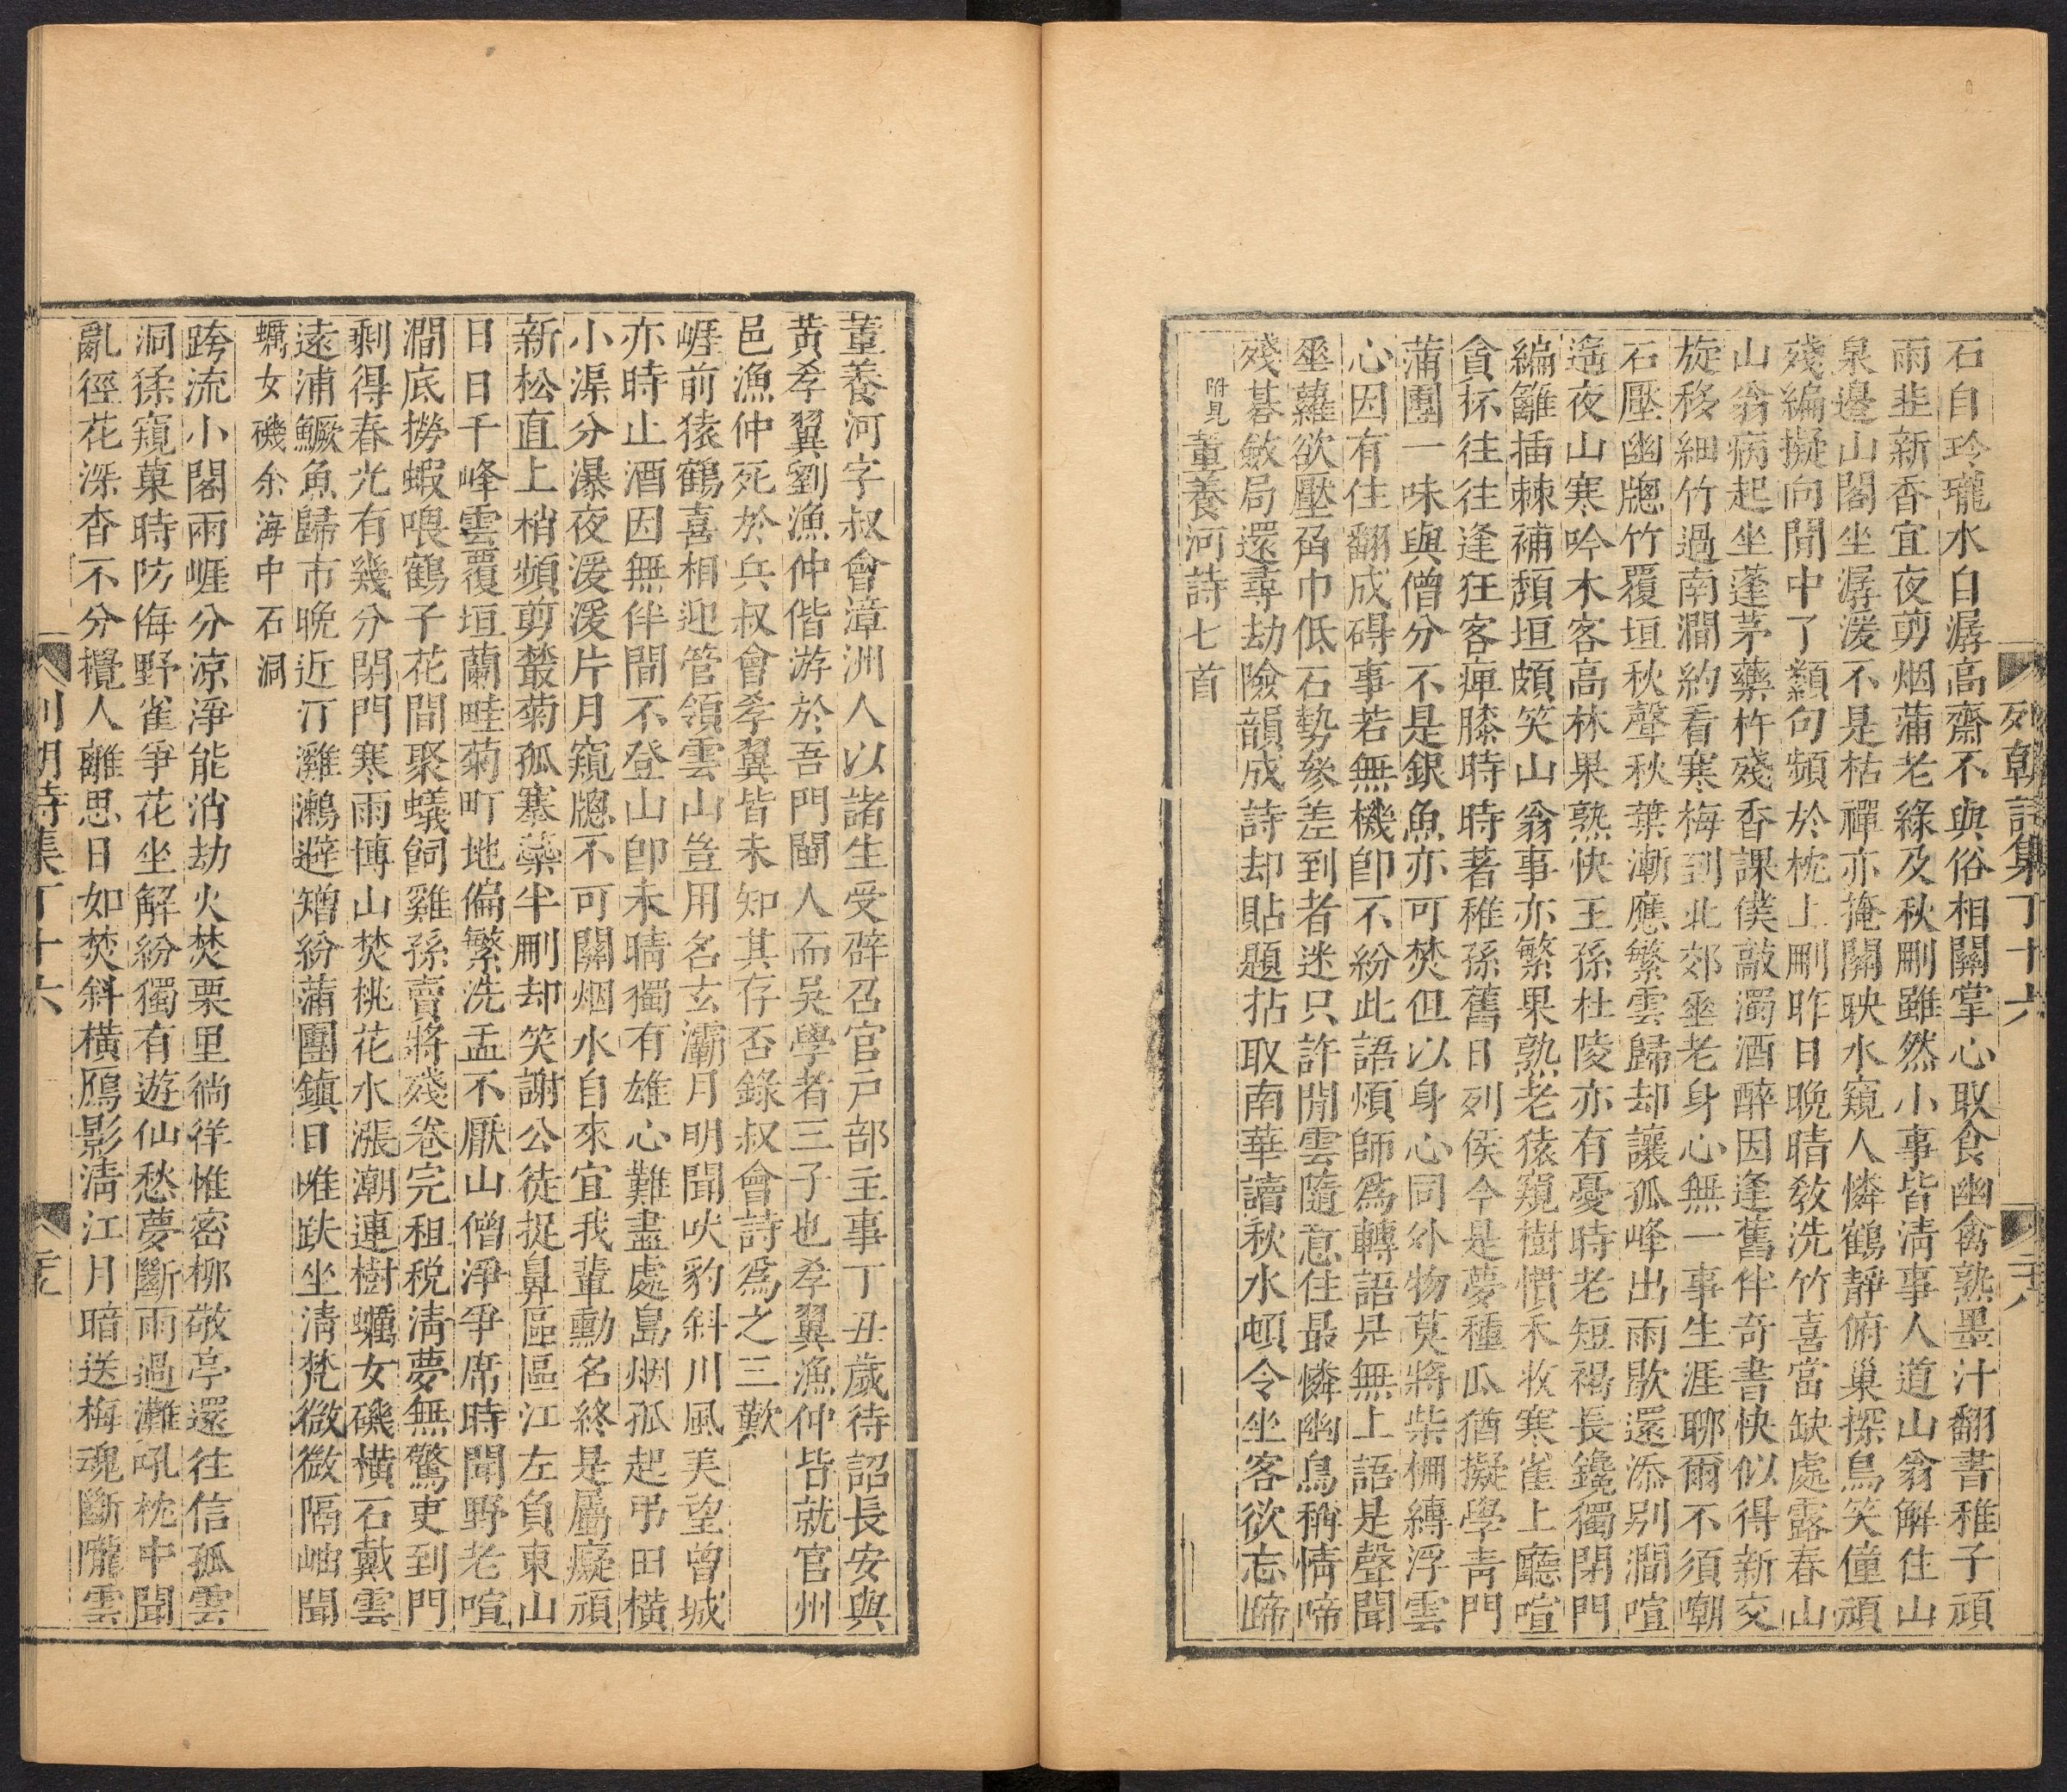 列朝詩集丁十六
石自玲瓏水自潺高齋不與俗相關掌心取食幽禽熟墨汁翻書稚子頑
雨韭新香宜夜剪烟蒲老綠及秋刪雖然小事皆清事人道山翁解住山
泉邊山閣坐潺湲不是枯禪亦掩關映水窺人憐鶴靜俯巢探鳥笑僮頑
殘編擬向閒中了纇句頻於枕上刪昨日晚晴敎洗竹喜當缺處露春山
山翁病起坐蓬茅藥杵殘香課僕敲濁酒醉因逢舊伴奇書快似得新交
旋移細竹過南澗約看寒梅到北郊垩老身心無一事生涯聊爾不須嘲
石壓幽牕竹覆垣秋聲秋葉漸應繁雲歸却讓孤峰出雨歇還添别澗喧
遙夜山寒吟木客高林果熟快王孫杜陵亦有憂時老短褐長鑱獨閉門
編籬插棘補頹垣頗笑山翁事亦繁果熟老猿窺樹慣禾收寒雀上廳喧
貪杯往往逢狂客痺膝時時著稚孫舊日列侯今是夢種瓜猶擬學青門
蒲團一味與僧分不是銀魚亦可焚但以身心同外物莫將柴柵縛浮雲
心因有住翻成碍事若無機卽不紛此語煩師爲轉語是無上語是聲聞
垩蘿欲壓角巾低石勢參差到者迷只許閒雲隨意住最憐幽鳥稱情啼
殘碁斂局還尋劫險韻成詩却貼題拈取南華讀秋水頓令坐客欲忘蹄
附見董養河詩七首
董養河字叔會漳洲人以諸生受辟召官戸部主事丁丑歲待詔長安與
黃孝翼劉漁仲偕游於吾門閩人而吳學者三子也孝翼漁仲皆就官州
邑漁仲死於兵叔會孝翼皆未知其存否錄叔會詩爲之三歎
崕前猿鶴喜相迎管領雲山豈用名玄灞月明聞吠豹斜川風美望曾城
亦時止酒因無伴間不登山卽未晴獨有雄心難盡處島烟孤起弔田橫
小渠分瀑夜湲湲片月窺牕不可關烟水自來宜我輩勳名終是屬癡頑
新松直上梢頻剪叢菊孤塞蘂半刪却笑謝公徒捉鼻區區江左負東山
日日千峰雲覆垣蘭畦菊町地偏繁洗盂不厭山僧淨爭席時聞野老喧
澗底撈蝦喂鶴子花間聚蟻飼雞孫賣將殘卷完租税淸夢無驚吏到門
剩得春光有幾分閉門寒雨博山焚桃花水漲潮連樹蠣女磯橫石戴雲
遠浦鱖魚歸市晩近汀灘鵜避矰紛蒲團鎭日唯趺坐淸梵微微隔岫聞
蠣女磯余海中石洞
跨流小閣兩崕分涼淨能消劫火焚栗里徜徉惟密栁敬亭還往信孤雲
洞猱窺菓時防侮野雀爭花坐解紛獨有遊仙愁夢斷雨過灘吼枕中聞
亂徑花深杳不分攪人離思日如焚斜橫鴈影淸江月暗送梅魂斷隴雲
列朝詩集丁十六